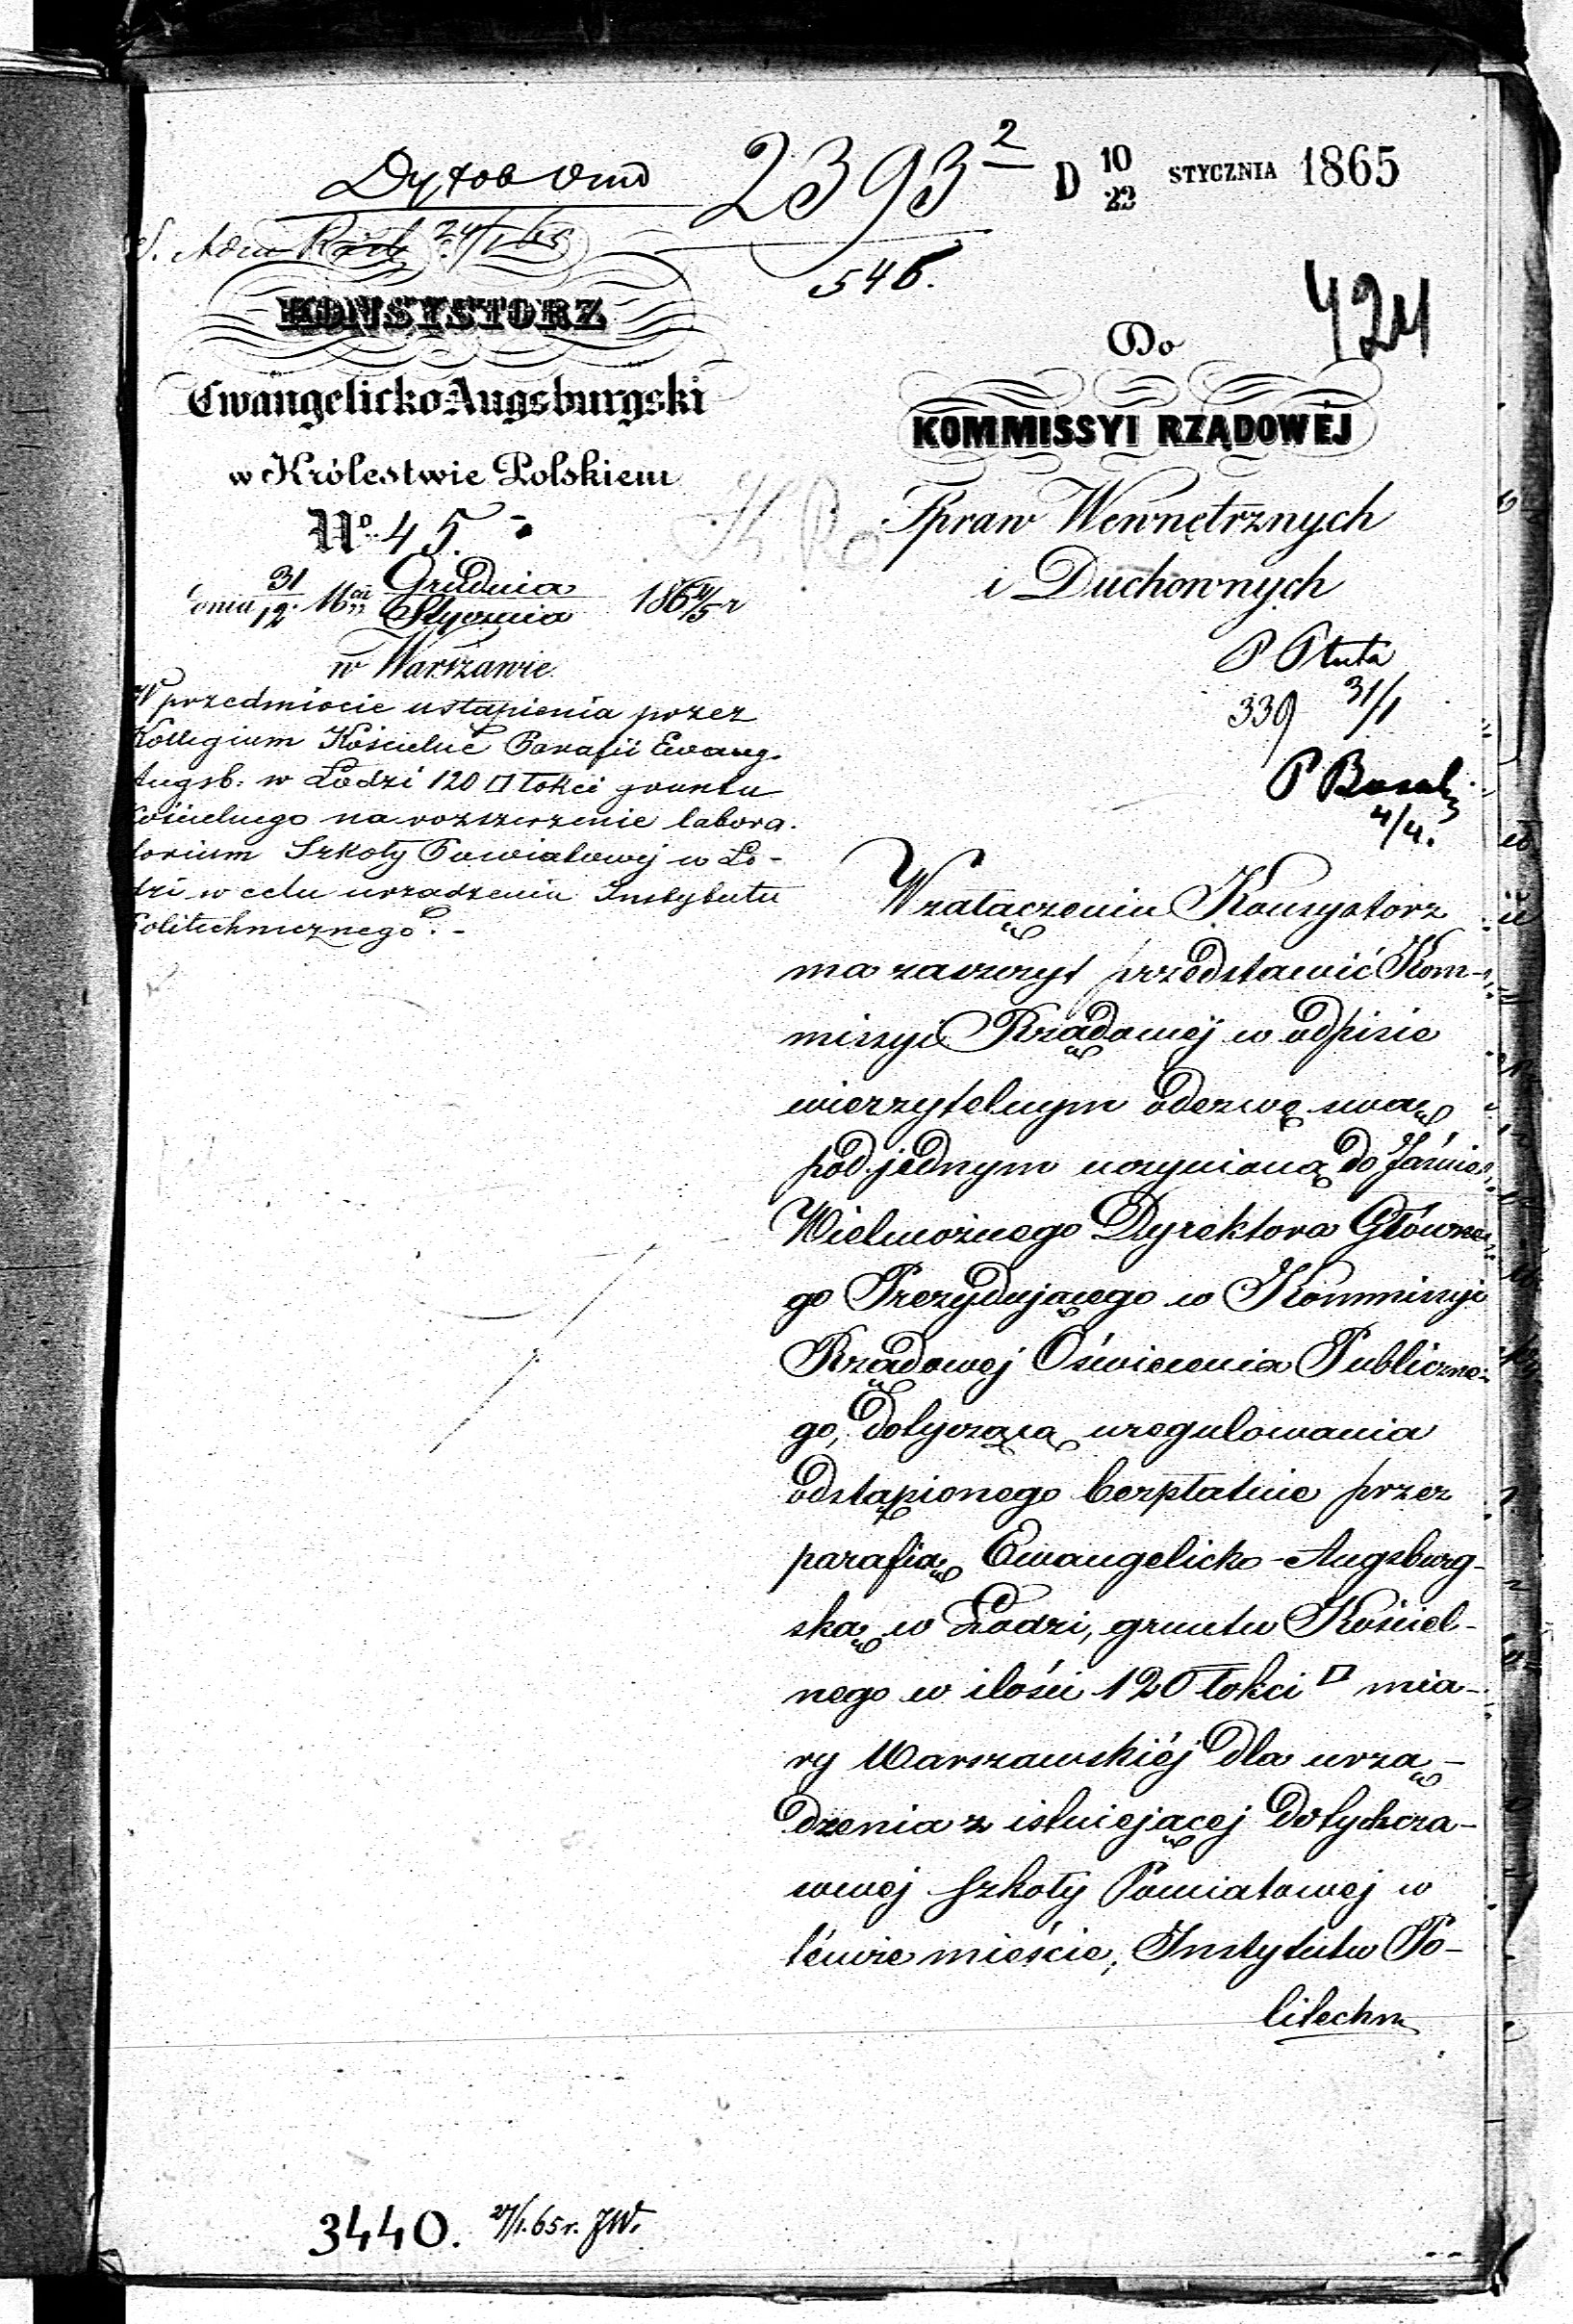 2393 2
546.
D 10/22 STYCZNIA 1865
24/1 65
424
KONSYSTORZ
Ewangelicko Augsburgski
w Królestwie Polskiem
No 45.
dnia 31/12 Mca Grudnia/Stycznia 1864/5 r
w Warszawie.
W przedmiocie ustąpienia przez
Kollegium Kościelne Parafii Ewang.
Augsb. w Łodzi 120 □ łokci gruntu
Kościelnego na rozszerzenie labora-
torium Szkoły Powiatowej w Ło-
dzi w celu urządzenia Instytutu
Politechnicznego.-
Do
KOMMISSYI RZĄDOWÉJ
Spraw Wewnętrznych
i Duchownych
339 31/1
4/4.
W załączeniu Konsystorz
ma zaszczyt przedstawić Kom-
missyi Rządowéj w odpisie
wierzytelnym odezwę swą
pod jednym uczynioną do Jaśnie
Wielmożnego Dyrektora Główne-
go Prezydującego w Kommissyi
Rządowej Oświecenia Publiczne-
go, dotyczącą uregulowania
odstąpionego bezpłatnie przez
parafią Ewangelicko-Augsburg-
ską w Łodzi, gruntu Kościel-
nego w ilości 120 łokci □ mia-
ry Warszawskiéj dla urzą-
dzenia z istniejącej dotychcza-
sowej Szkoły Powiatowej w
témże mieście, Instytutu Po-
litechn
3440. 27/1.65 r. JW.